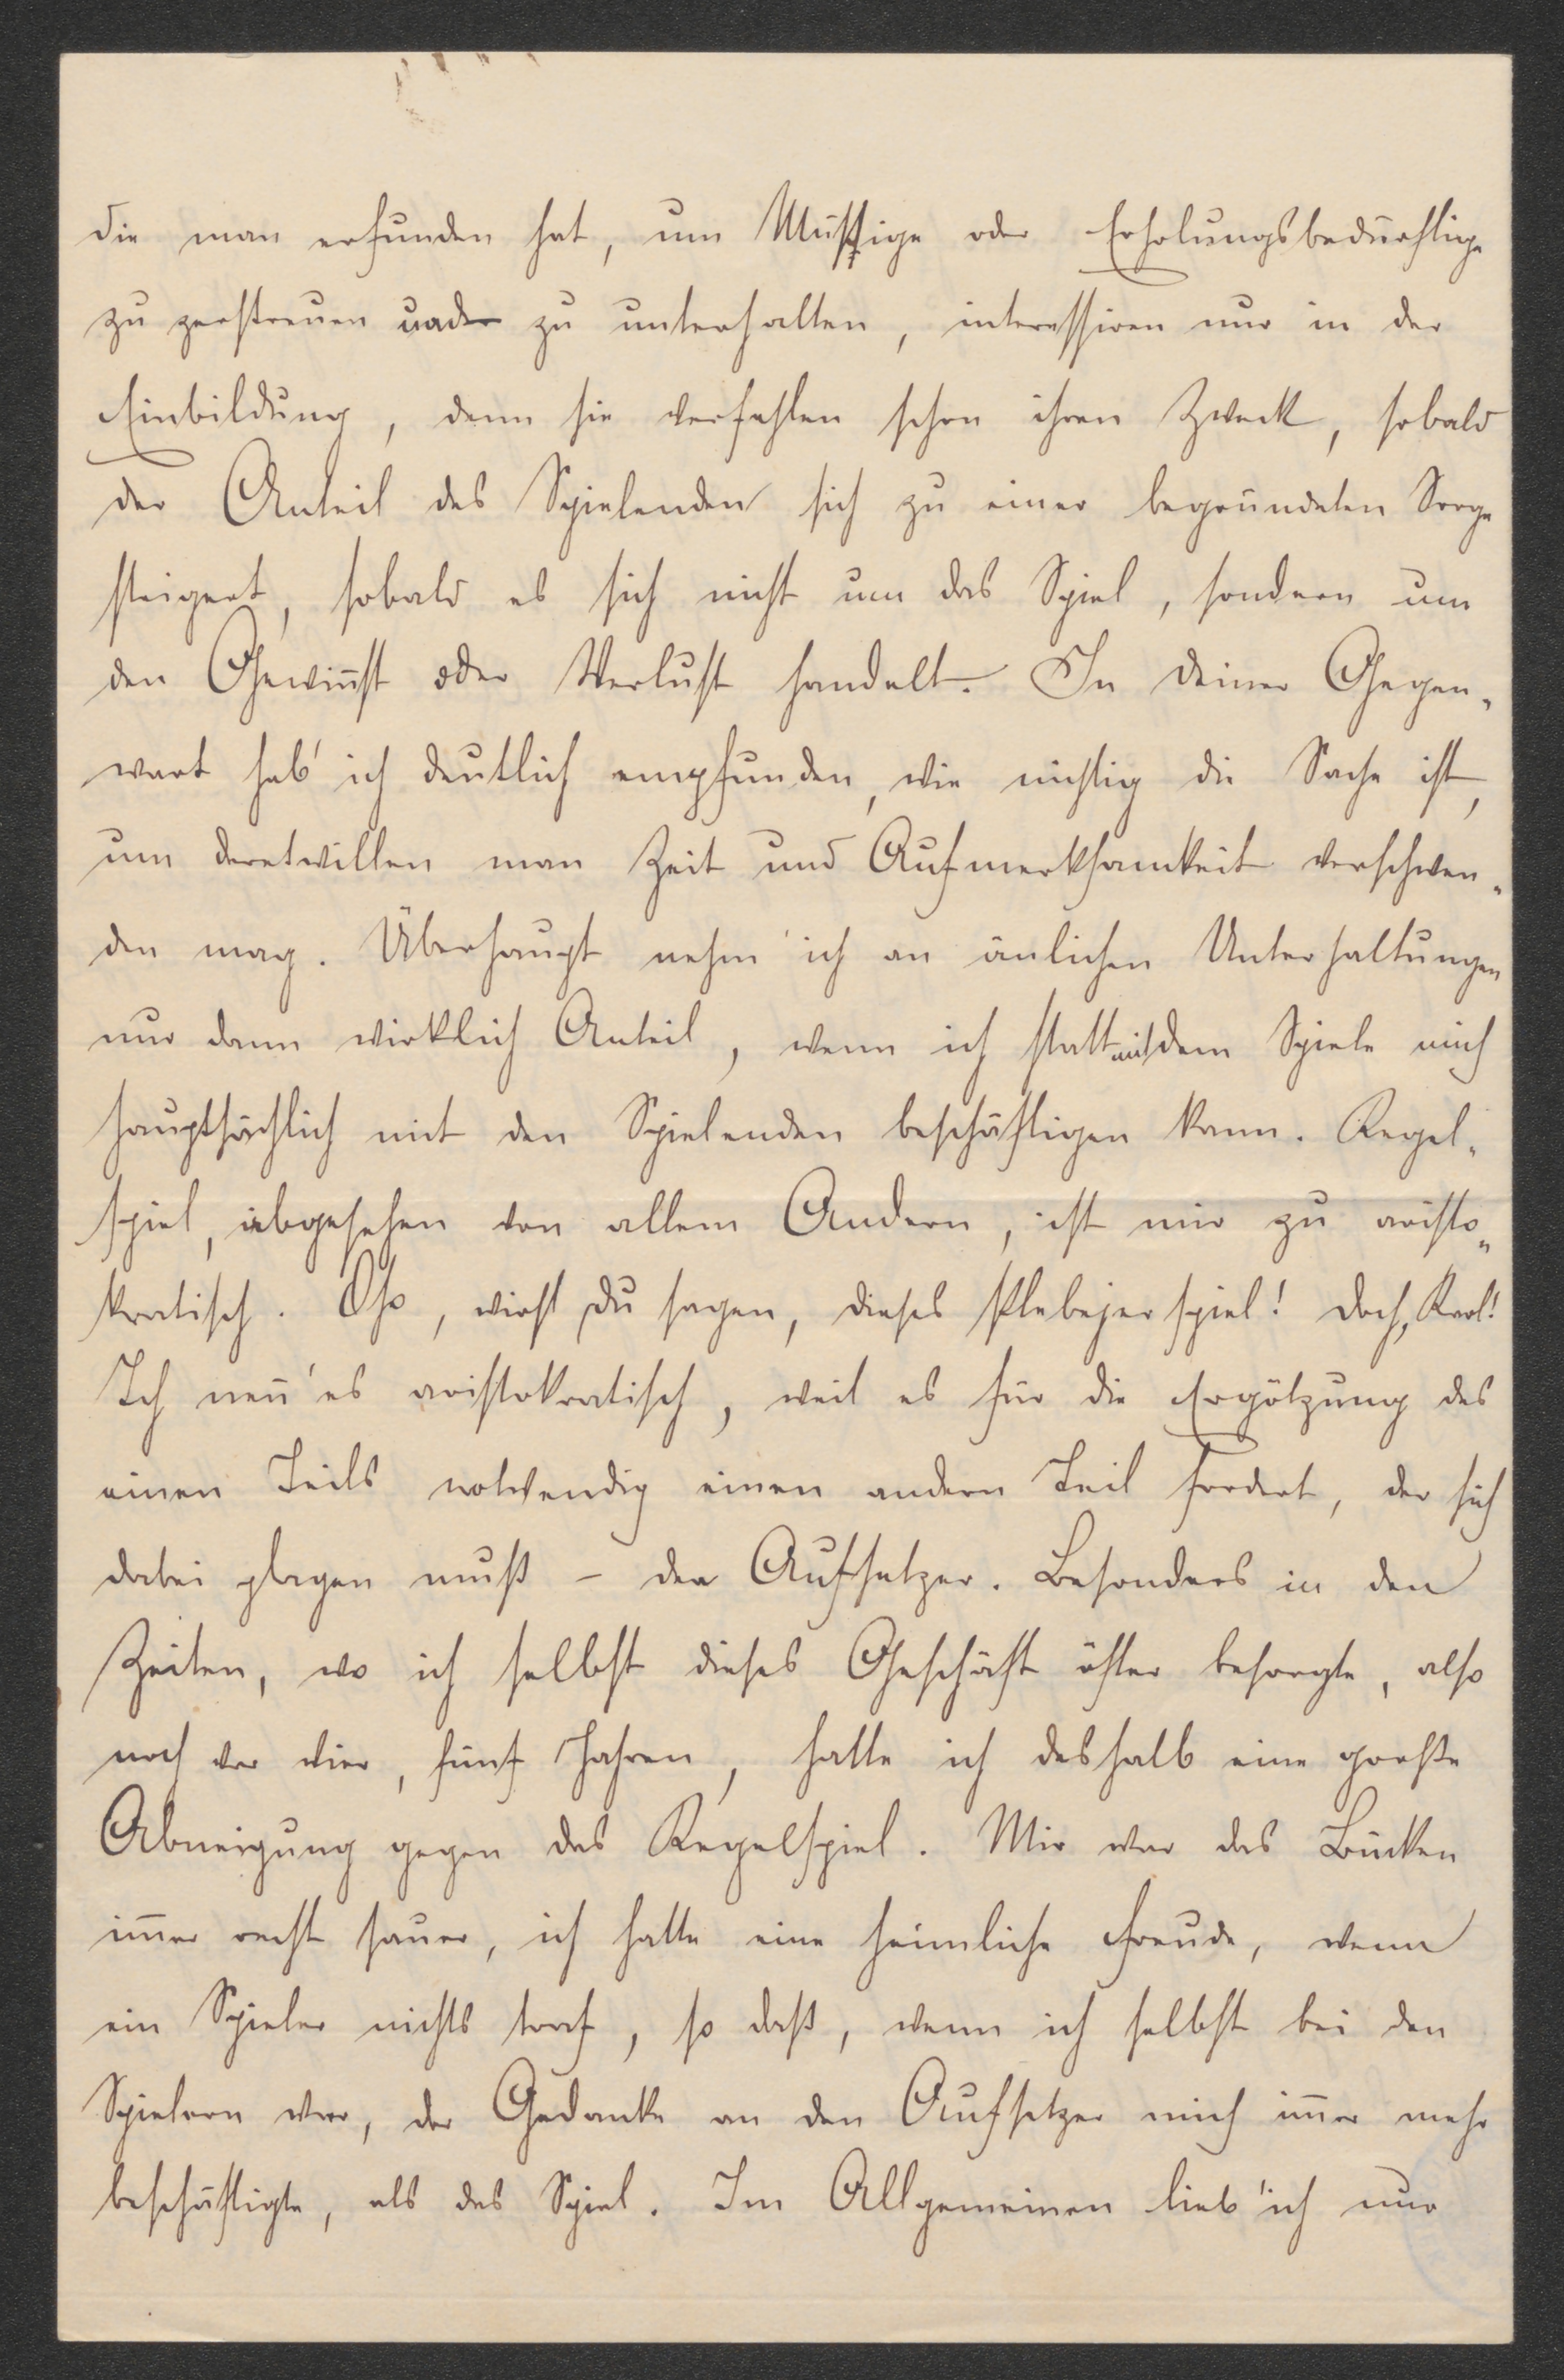 die man erfunden hat, um Müssige oder Erholungsbedürftige
zu zerstreuen und zu unterhalten, interessiren nur in der
Einbildung, denn sie verfehlen schon ihren Zweck, sobald
der Anteil des Spielenden sich zu einer begründeten Sorge
steigert, sobald es sich nicht um das Spiel, sondern um
den Gewinnst oder Verlust handelt. In deiner Gegen„
wart hab' ich deutlich empfunden, wie nichtig die Sache ist,
um deretwillen man Zeit und Aufmerksamkeit verschwen„
den mag. Überhaupt nehm' ich an änlichen Unterhaltungen
nur dann wirklich Anteil, wenn ich statt mit dem Spiele mich
hauptsächlich mit den Spielenden beschäftigen kann. Kegel„
spiel, abgesehen von allem Andern, ist mir zu aristo„
kratisch. Oho, wirst du sagen, dieses Plebejerspiel! Doch, Karl!
Ich nen̄' es aristokratisch, weil es für die Ergötzung des
einen Teils notwendig einen andern Teil fordert, der sich
dabei plagen muß – den Aufsetzer. Besonders in den
Zeiten, wo ich selbst dieses Geschäft öfter besorgte, also
noch vor vier, fünf Jahren, hatte ich deshalb eine große
Abneigung gegen das Kegelspiel. Mir war das Bücken
im̄er recht sauer, ich hatte eine heimliche Freude, wenn
ein Spieler nichts traf, so daß, wenn ich selbst bei den
Spielern war, der Gedanke an den Aufsetzer mich im̄er mehr
beschäftigte, als das Spiel. Im Allgemeinen lieb' ich nur